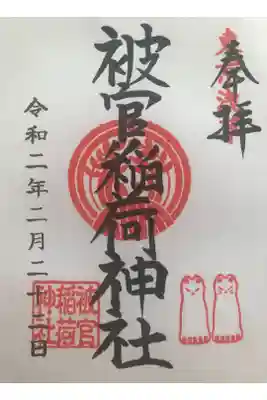 東京浅草
奉拝
被官稲荷神社
令和二年二月二十二日
被官
稲荷
神社